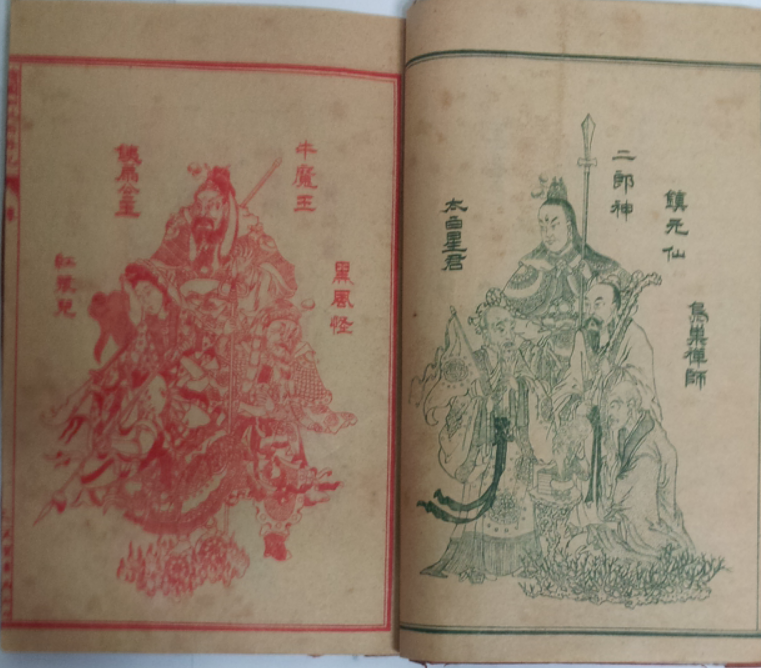 烏巢禪師
鎮元仙
二郎神
太白星君
黑風怪
牛魔王
鐵扇公主
紅孩兒